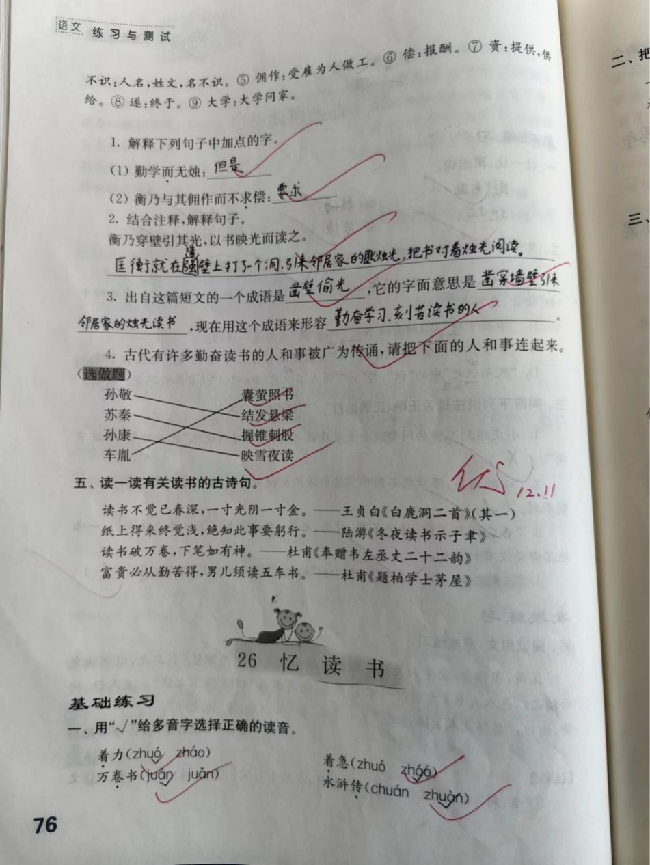 语文 练习与测试
不识:人名,姓文,名不识。⑤ 佣作:受雇为人做工。⑥ 偿:报酬。⑦ 资:提供,供
给。⑧ 遂:终于。⑨ 大学:大学问家。
1. 解释下列句子中加点的字。
(1) 勤学而无烛: 但是
(2) 衡乃与其佣作而不求偿: 要求
2. 结合注释,解释句子。
衡乃穿壁引其光,以书映光而读之。
匡衡就在墙壁上打了个洞,引来邻居家的烛光,把书对着烛光阅读。
3. 出自这篇短文的一个成语是 凿壁偷光 ,它的字面意思是 凿穿墙壁引来
邻居家的烛光读书 ,现在用这个成语来形容 勤奋学习,刻苦读书的人 。
4. 古代有许多勤奋读书的人和事被广为传诵,请把下面的人和事连起来。
(选做题)
孙敬 囊萤照书
苏秦 结发悬梁
孙康 握锥刺股
车胤 映雪夜读
五、读一读有关读书的古诗句。
优 12.11
读书不觉已春深,一寸光阴一寸金。——王贞白《白鹿洞二首》(其一)
纸上得来终觉浅,绝知此事要躬行。——陆游《冬夜读书示子聿》
读书破万卷,下笔如有神。——杜甫《奉赠韦左丞丈二十二韵》
富贵必从勤苦得,男儿须读五车书。——杜甫《题柏学士茅屋》
26 忆读书
基础练习
一、用“√”给多音字选择正确的读音。
着力(zhuó zháo) 着急(zhuó zháo)
万卷书(juàn juǎn) 水浒传(chuán zhuàn)
76
二、把
三、